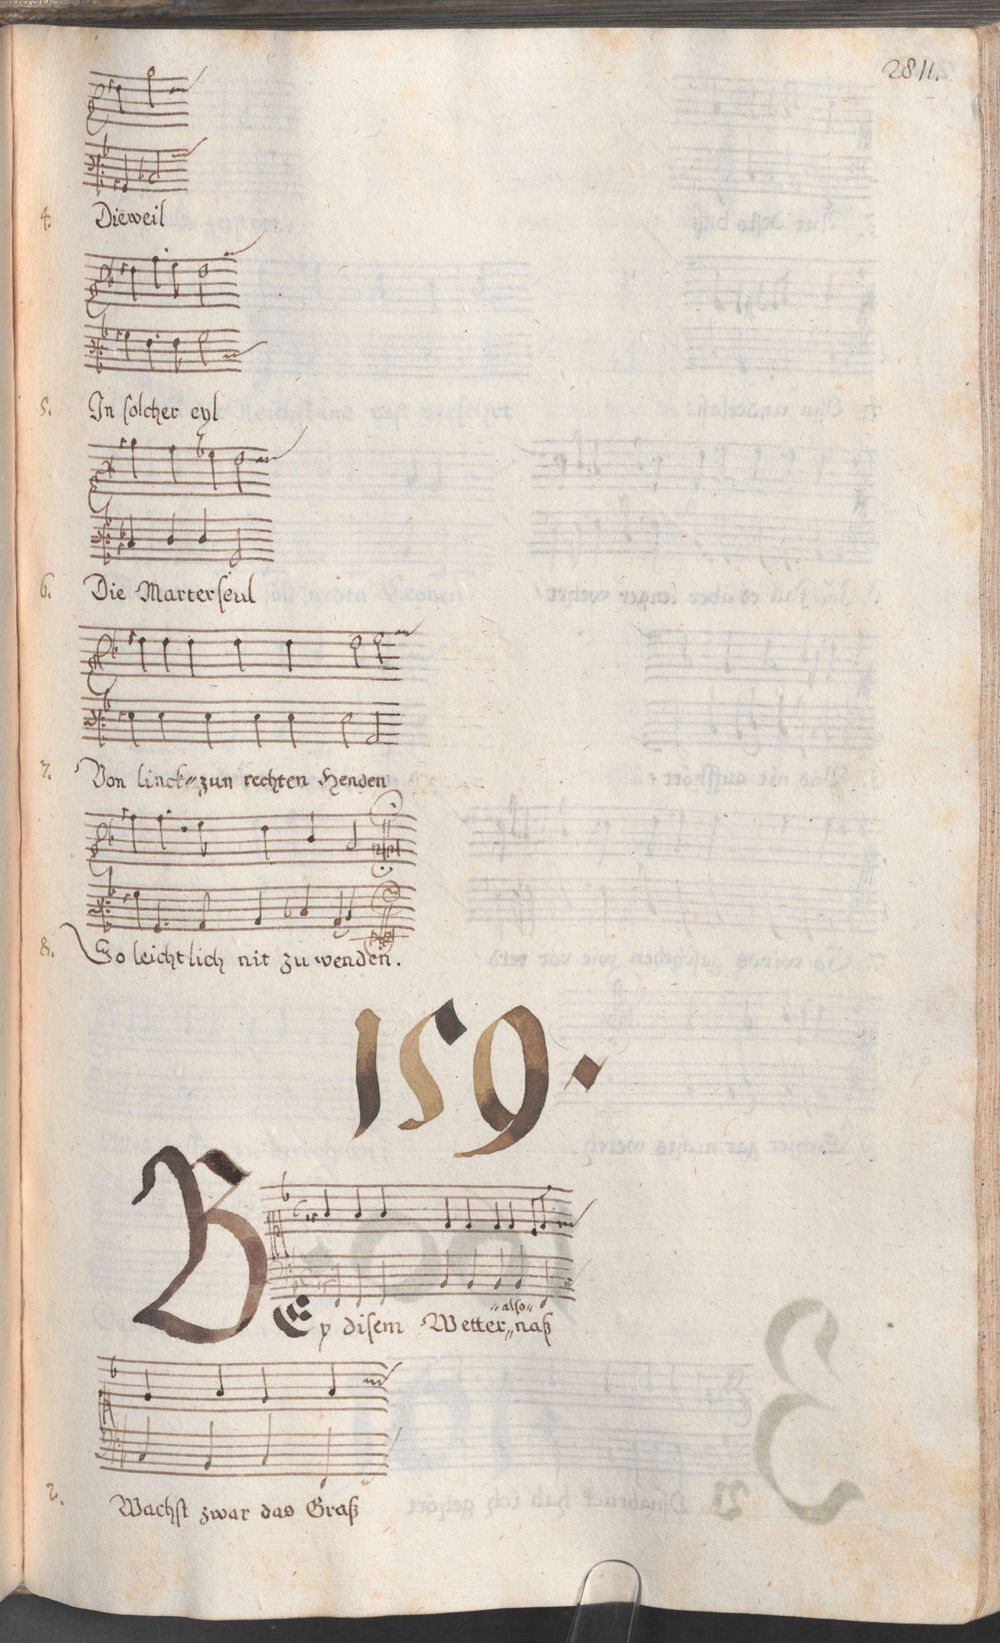 2811.
4. Dieweil
5. In solcher eyl
6. Die Marterseul
7. Von linck=zun rechten Henden
8. So leichtlich nit zu wenden.
159.
BEy disem Wetter,,naß
"also"
2. Wachst zwar das Graß